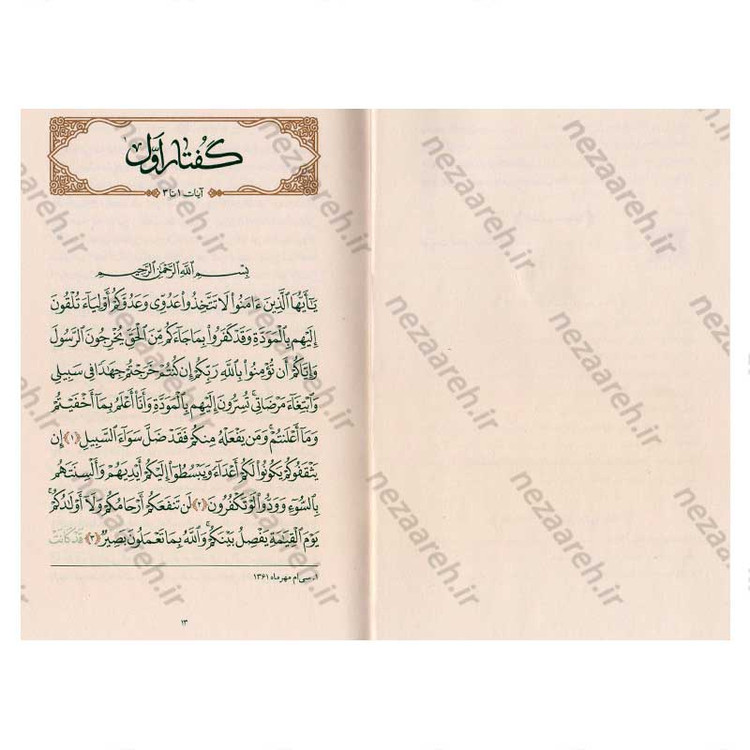 گفتار اوّل۱
آیات ۱ تا ۳
بِسْمِ ٱللَّهِ ٱلرَّحْمَٰنِ ٱلرَّحِيمِ
يَٰٓأَيُّهَا ٱلَّذِينَ ءَامَنُوا۟ لَا تَتَّخِذُوا۟ عَدُوِّى وَعَدُوَّكُمْ أَوْلِيَآءَ تُلْقُونَ
إِلَيْهِم بِٱلْمَوَدَّةِ وَقَدْ كَفَرُوا۟ بِمَا جَآءَكُم مِّنَ ٱلْحَقِّ يُخْرِجُونَ ٱلرَّسُولَ
وَإِيَّاكُمْ أَن تُؤْمِنُوا۟ بِٱللَّهِ رَبِّكُمْ إِن كُنتُمْ خَرَجْتُمْ جِهَٰدًا فِى سَبِيلِى
وَٱبْتِغَآءَ مَرْضَاتِى تُسِرُّونَ إِلَيْهِم بِٱلْمَوَدَّةِ وَأَنَا۠ أَعْلَمُ بِمَآ أَخْفَيْتُمْ
وَمَآ أَعْلَنتُمْ وَمَن يَفْعَلْهُ مِنكُمْ فَقَدْ ضَلَّ سَوَآءَ ٱلسَّبِيلِ ﴿۱﴾ إِن
يَثْقَفُوكُمْ يَكُونُوا۟ لَكُمْ أَعْدَآءً وَيَبْسُطُوٓا۟ إِلَيْكُمْ أَيْدِيَهُمْ وَأَلْسِنَتَهُم
بِٱلسُّوٓءِ وَوَدُّوا۟ لَوْ تَكْفُرُونَ ﴿۲﴾ لَن تَنفَعَكُمْ أَرْحَامُكُمْ وَلَآ أَوْلَٰدُكُمْ
يَوْمَ ٱلْقِيَٰمَةِ يَفْصِلُ بَيْنَكُمْ وَٱللَّهُ بِمَا تَعْمَلُونَ بَصِيرٌ ﴿۳﴾ قَدْ كَانَتْ
۱. سی‌ام مهرماه ۱۳۶۱
۱۳
nezaareh.ir